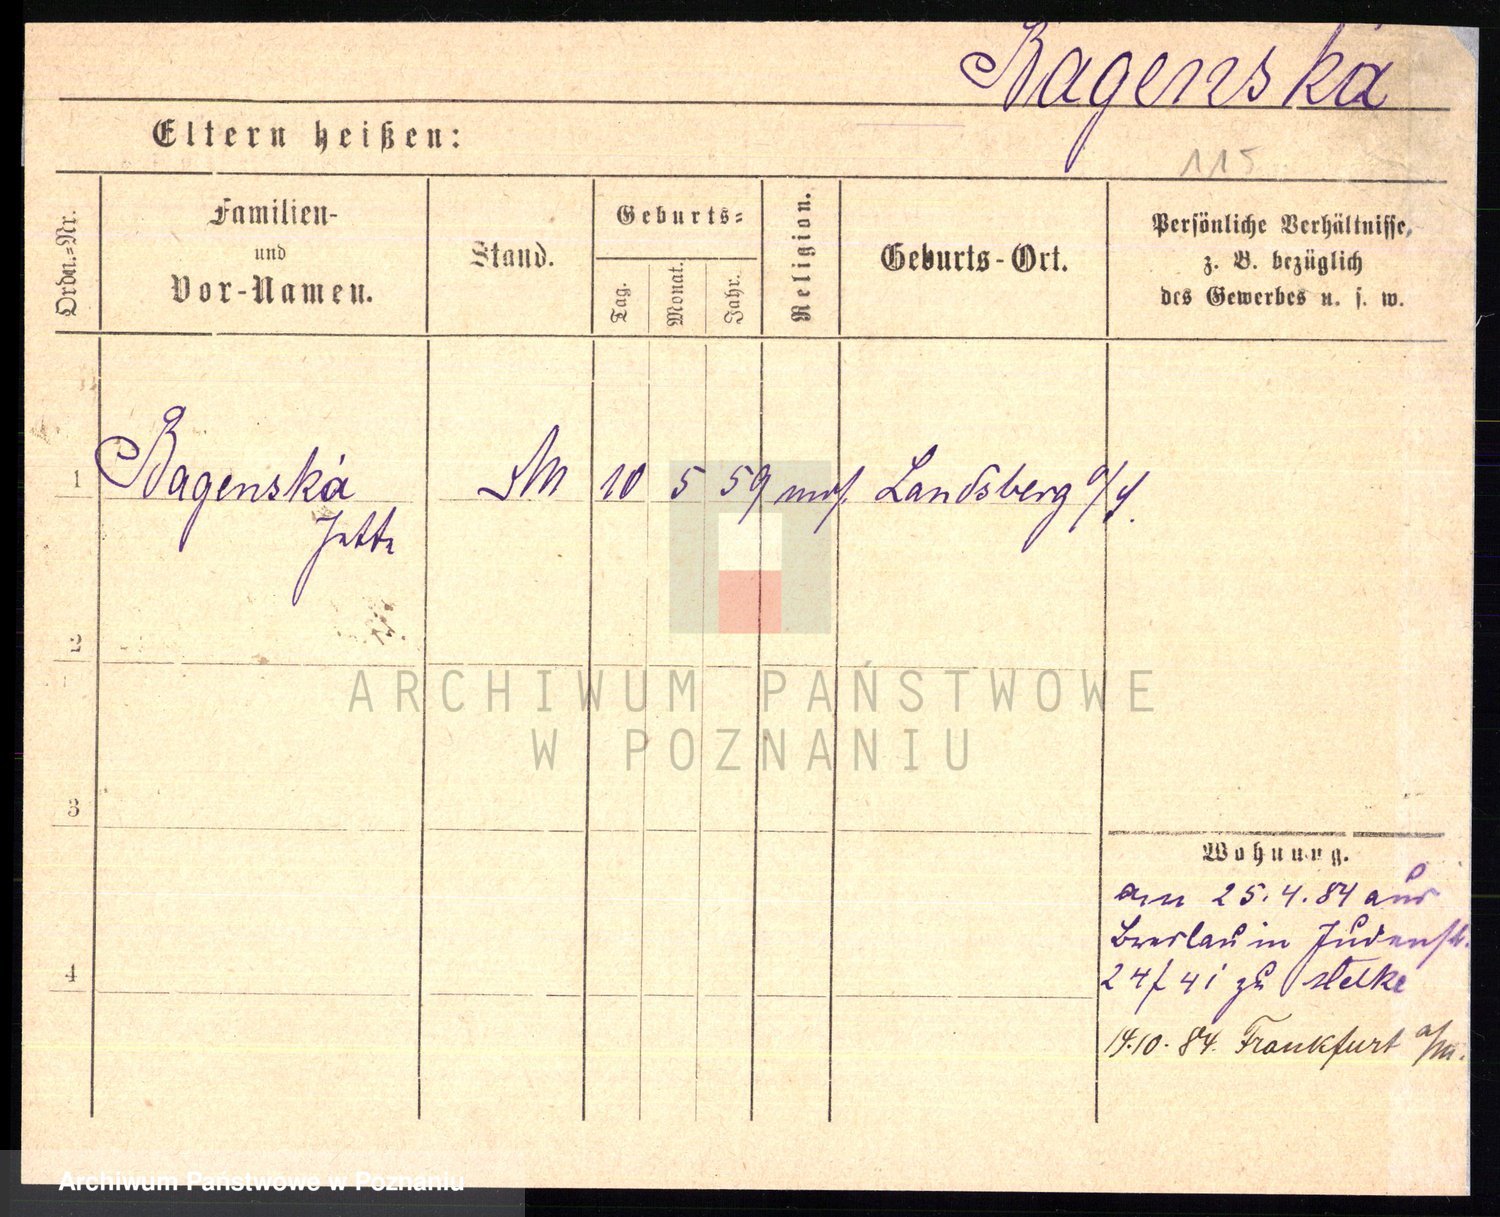 Bagenska
Eltern heißen:
115
Ordn.-Nr.
Familien-
und
Vor-Namen.
Stand.
Geburts-
Tag.
Monat.
Jahr.
Religion.
Geburts-Ort.
Persönliche Verhältnisse,
z. B. bezüglich
des Gewerbes u. s. w.
1 Bagenska 10 5 59 mos. Landsberg
Jette
2
ARCHIWUM PAŃSTWOWE
W POZNANIU
3
Wohnung.
am 25.4.84 aus
Breslau in Judenstr.
4
24/41 zu
14.10.84. Frankfurt a/M.
Archiwum Państwowe w Poznaniu